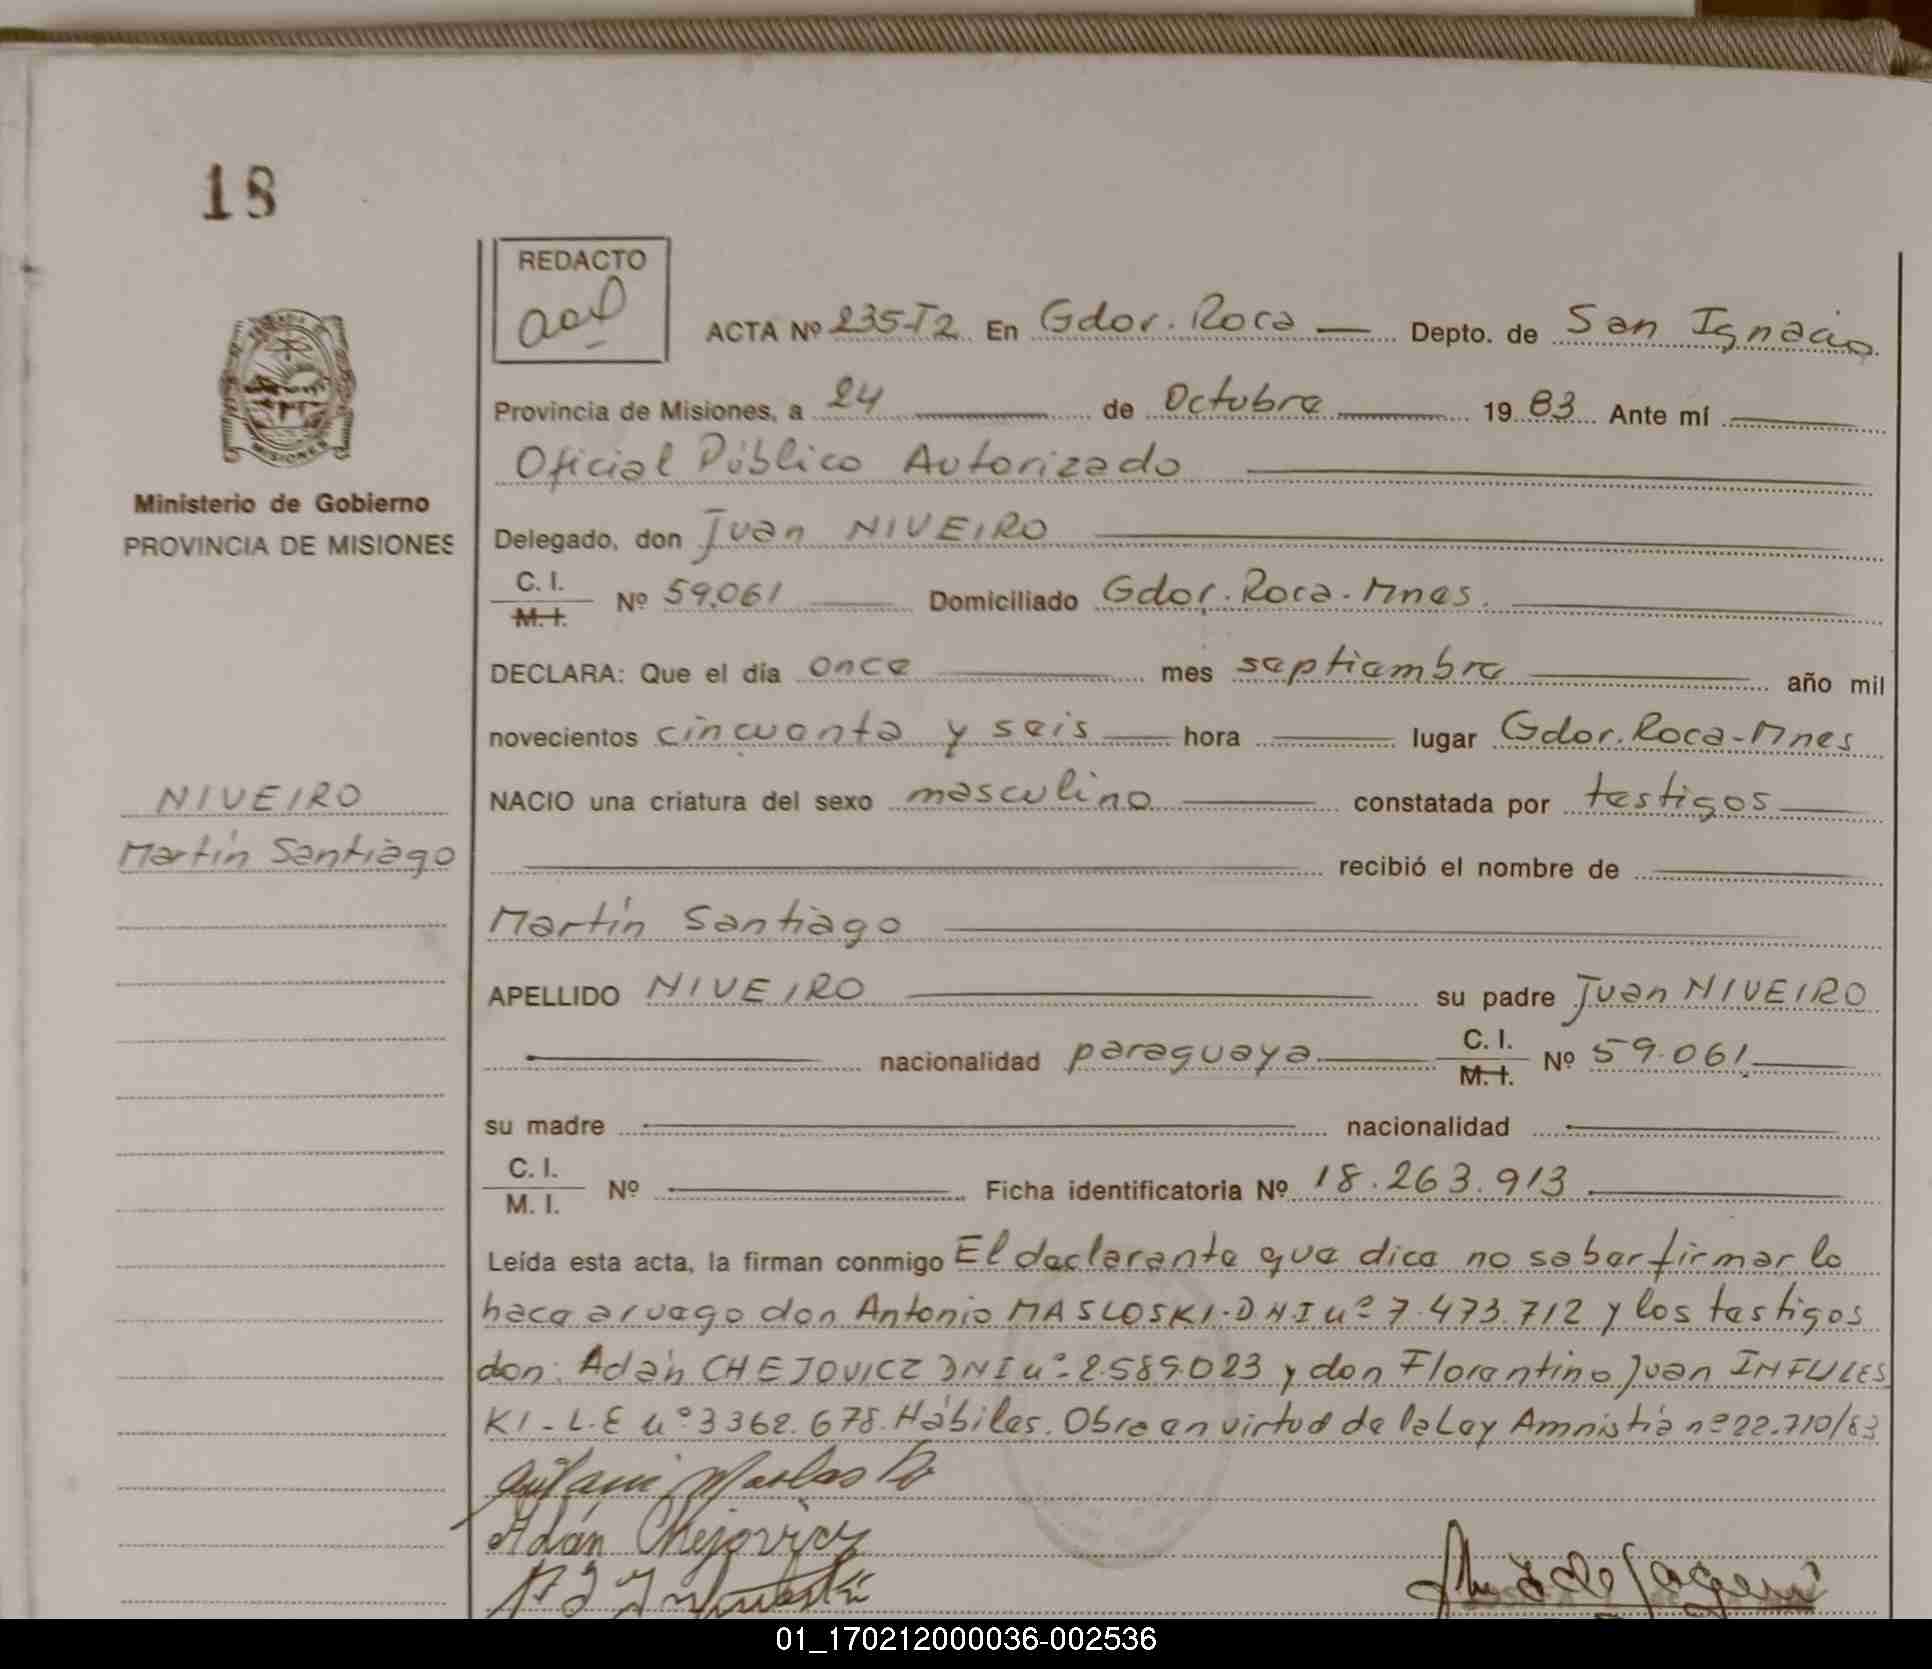 18
REDACTO
ACTA Nº 235-T2 En Gdor. Roca Depto. de San Ignacio
Provincia de Misiones, a 24 de Octubre 1983 Ante mí
Oficial Público Autorizado
Ministerio de Gobierno
PROVINCIA DE MISIONES
Delegado, don Juan NIVEIRO
C. I.
M. I. Nº 59.061 Domiciliado Gdor. Roca. Mnes.
DECLARA: Que el día once mes septiembre año mil
novecientos cincuenta y seis hora lugar Gdor. Roca-Mnes
NIVEIRO
Martín Santiago
NACIO una criatura del sexo masculino constatada por testigos
recibió el nombre de
Martín Santiago
APELLIDO NIVEIRO su padre Juan NIVEIRO
nacionalidad paraguaya C. I. M. I. Nº 59.061
su madre nacionalidad
C. I.
M. I. Nº Ficha identificatoria Nº 18.263.913
Leída esta acta, la firman conmigo El declarante que dice no saber firmar lo
hace a ruego don Antonio MASLOSKI. DNI nº 7.473.712 y los testigos
don: Adán CHEJOVICZ DNI nº 2.589.023 y don Florentino Juan INFULES
KI - L.E nº 3362.678. Hábiles. Obra en virtud de la Ley Amnistía nº 22.710/83
Adán Chejovicz
01_170212000036-002536